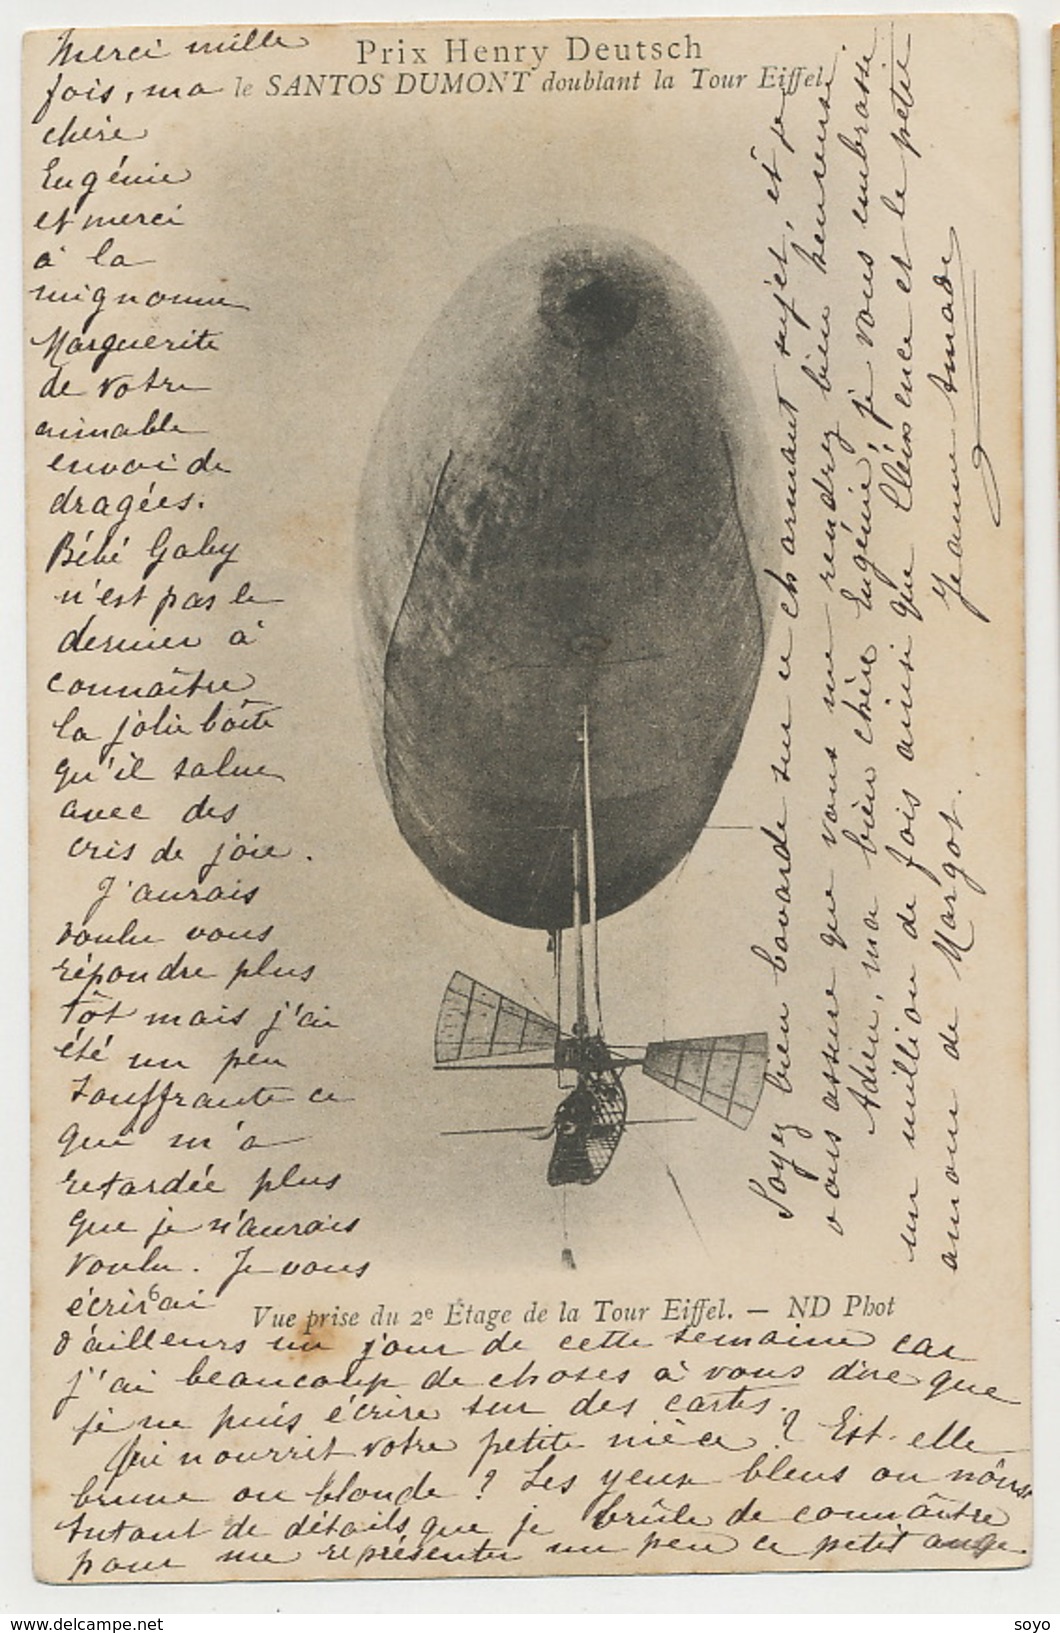 Prix Henry Deutsch
le SANTOS DUMONT doublant la Tour Eiffel.
Merci mille
fois, ma
chère
Eugénie
et merci
à la
mignonne
Marguerite
de votre
aimable
envoi de
dragées.
Bébé Gaby
n'est pas le
dernier à
connaître
la jolie boîte
qu'il salue
avec des
cris de joie.
J'aurais
voulu vous
répondre plus
tôt mais j'ai
été un peu
souffrante ce
qui m'a
retardée plus
que je n'aurais
voulu. Je vous
écrirai
Vue prise du 2e Étage de la Tour Eiffel. — ND Phot
d'ailleurs un jour de cette semaine car
j'ai beaucoup de choses à vous dire que
je ne puis écrire sur des cartes.
Qui nourrit votre petite nièce? Est-elle
brune ou blonde? Les yeux bleus ou noirs
Autant de détails que je brûle de connaître
pour me représenter un peu ce petit ange.
Soyez bien bavarde sur ce charmant sujet, et je
vous assure que vous me rendrez bien heureuse.
Adieu, ma bien chère Eugénie, je vous embrasse
un million de fois ainsi que Clémence et la petite
amour de Margot.
Jeanne
soyo